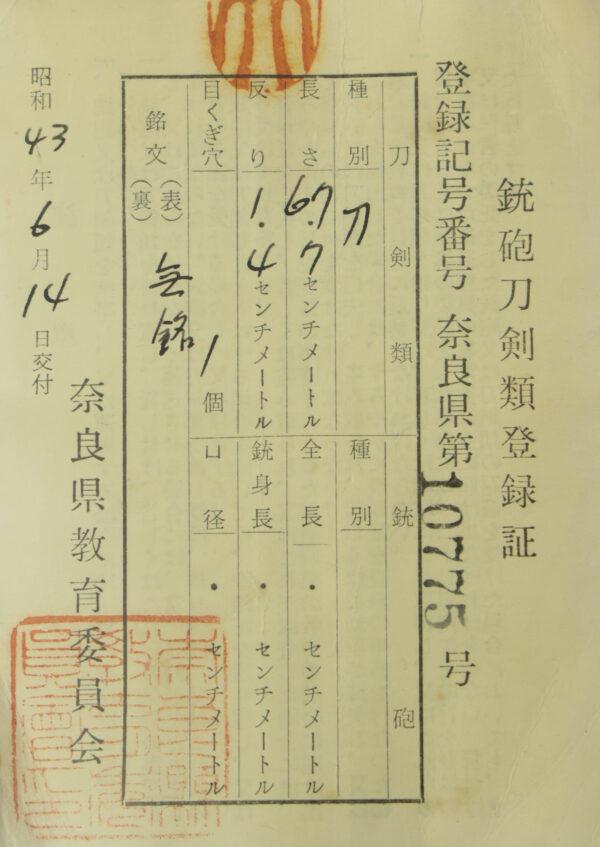 銃砲刀剣類登録証
登録記号番号 奈良県第10775号
刀剣類 銃砲
種別 刀 種別
長さ 67.7センチメートル 全長 ・ センチメートル
反り 1.4センチメートル 銃身長 ・ センチメートル
目くぎ穴 1個 口径 ・ センチメートル
銘文 (表)
(裏)
無銘
昭和43年6月14日交付
奈良県教育委員会